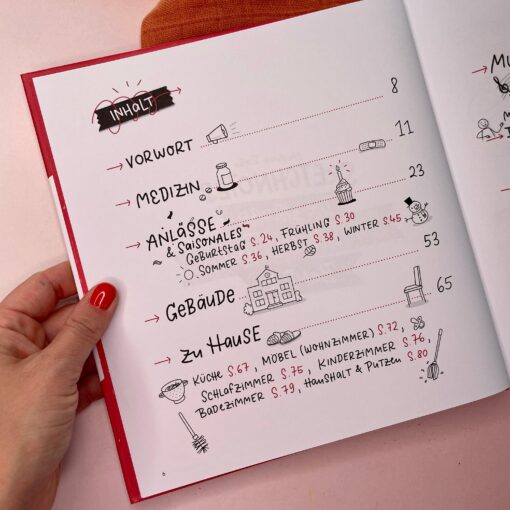 INHALT
VORWORT 8
MEDIZIN 11
ANLÄSSE 23
& SAISONALES
GEBURTSTAG S.24, FRÜHLING S.30
SOMMER S.36, HERBST S.38, WINTER S.45
GEBÄUDE 53
ZU HAUSE 65
KÜCHE S.67, MÖBEL (WOHNZIMMER) S.72,
SCHLAFZIMMER S.75, KINDERZIMMER S.76,
BADEZIMMER S.79, HAUSHALT & PUTZEN S.80
6